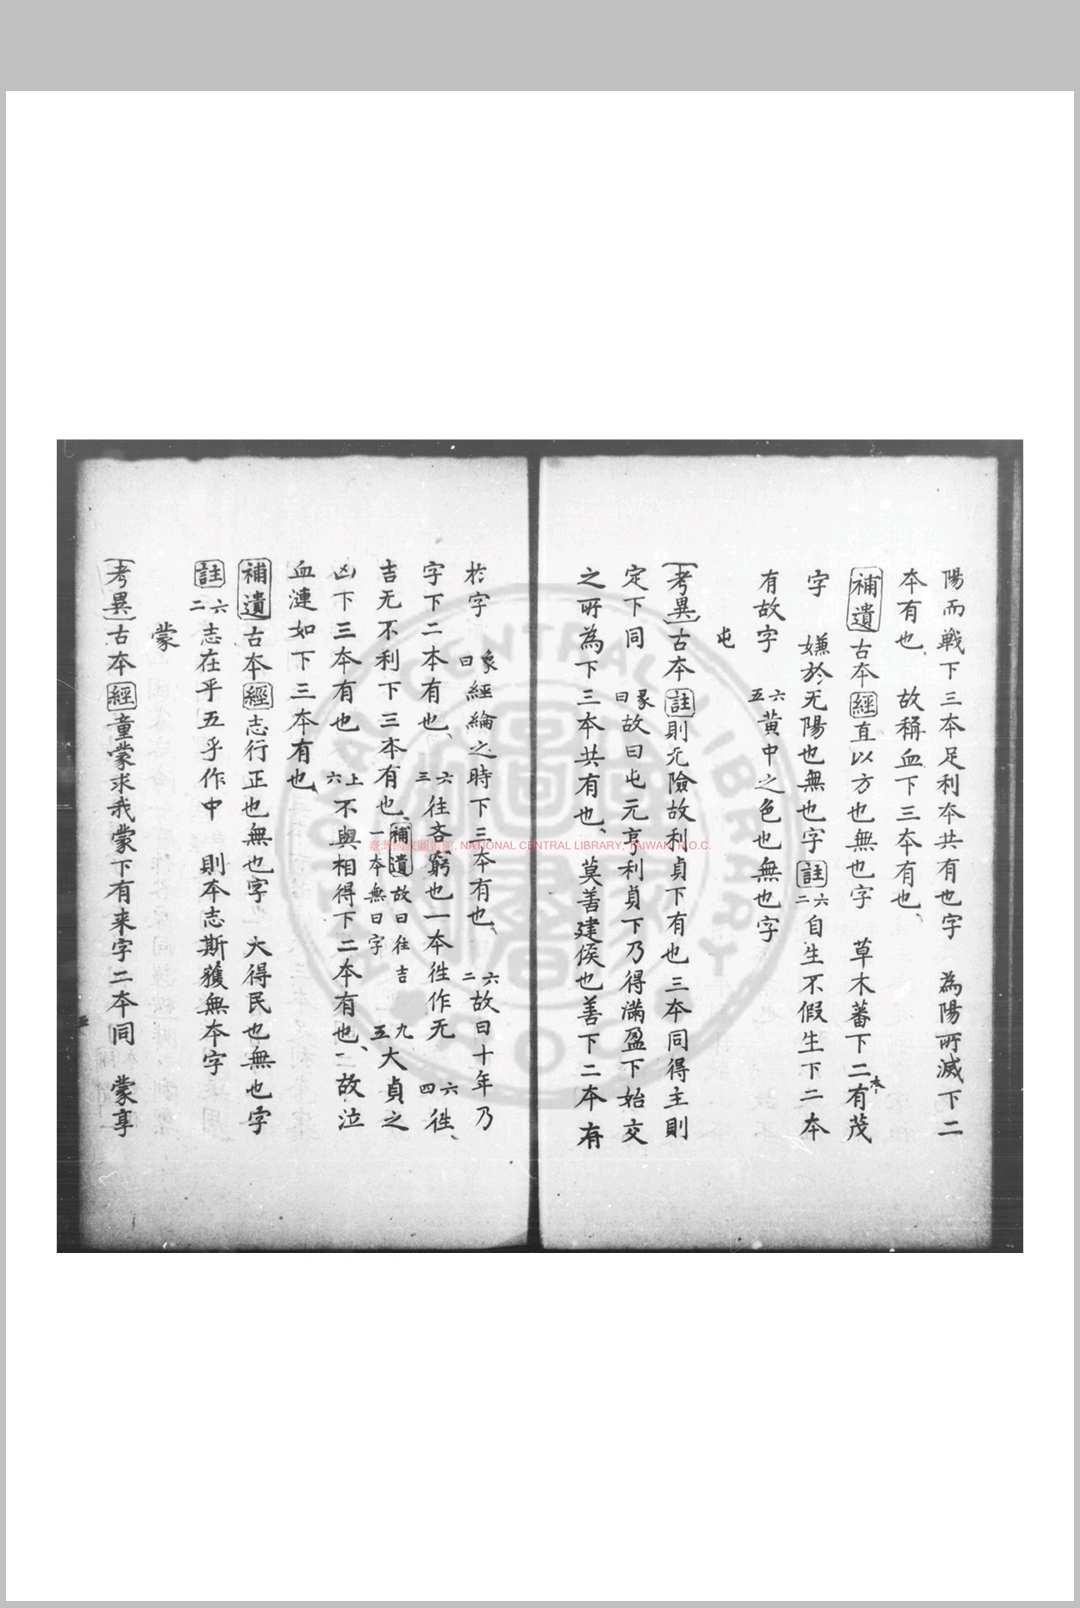 陽而戰下三本足利本共有也字　為陽所滅下二
本有也　故稱血下三本有也
補遺古本經直以方也無也字　草木蕃下二本有茂
字　嫌於无陽也無也字註六二自生不假生下二本
有故字　六五黄中之色也無也字
屯
考異古本註則无險故利貞下有也三本同得主則
定下同　彖曰故曰屯元亨利貞下乃得滿盈下始交
之所為下三本共有也、莫善建侯也善下二本有
於字　象曰經綸之時下三本有也、六二故曰十年乃
字下二本有也、六三往吝窮也一本徃作无　六四徃、
吉无不利下三本有也、補遺故曰往吉一本無曰字　九五大貞之
凶下三本有也　上六不與相得下二本有也、故泣
血漣如下三本有也、
補遺古本經志行正也無也字　大得民也無也字
註六二志在乎五乎作中　則本志斯獲無本字
蒙
考異古本經童蒙求我蒙下有来字二本同　蒙享
臺灣國家圖書館, NATIONAL CENTRAL LIBRARY, TAIWAN, R.O.C.
NATIONAL CENTRAL LIBRARY